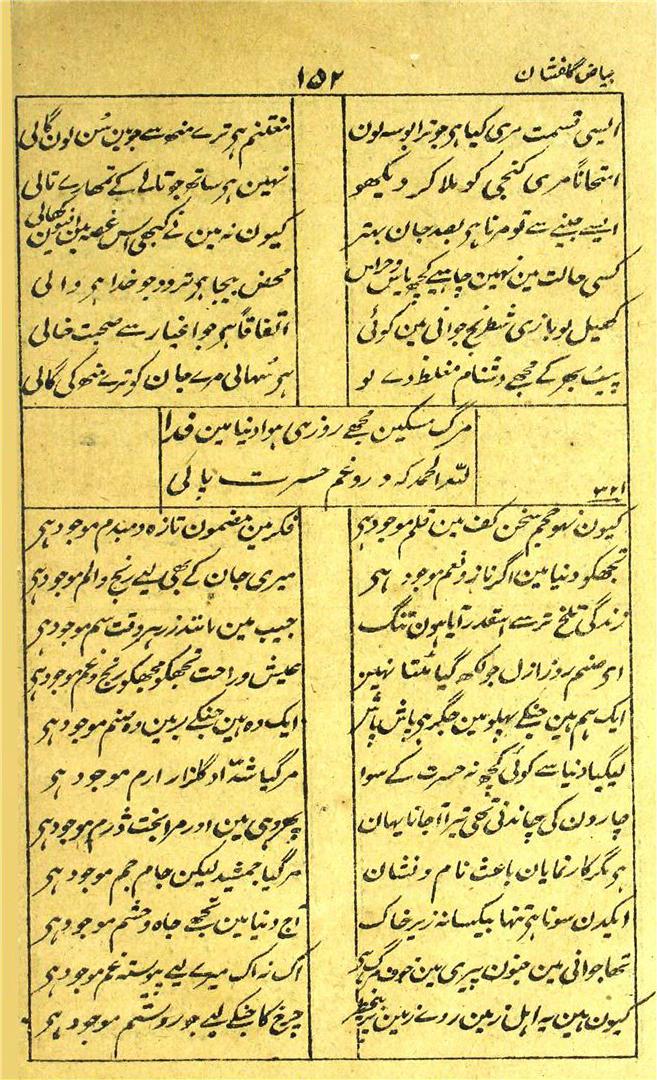 بیاض گلفشان
۱۵۲
ایسی قسمت مری کیا ہی جو ترا بوسہ لون
مغتنم ہی ترے منھ سے جو مین سُن لون گالی
امتحاناً مری کنجی کو ملا کر دیکھو
نہین ہی ساتھ جو تالے کے تمھارے تالی
ایسے جینے سے تو مرنا ہی بصد جان بہتر
کیون نہ مین نے کبھی اس غصہ مین افیون کھالی
کسی حالت مین نہین چاہیے کچھ یاس و ہراس
محض بیجا ہی تردد جو خدا ہی والی
کھیل لو بازی شطرنج جوانی مین کوئی
اتفاقاً ہی جو اغیار سے صحبت خالی
پیٹ بھر کے مجھے دشنام مغلظ دے لو
ہی سُہالی مرے جان کو ترے منھ کی گالی
مرگ مسکین مجھے روز ہی ہوا دنیا مین فدا
للہ الحمد کہ درد و غم حسرت پالی
۳۲۱
کیون نہو حجم سخن کف مین قلم موجود ہی
فکر مین مضمون تازہ دمبدم موجود ہی
تجھکو دنیا مین اگر ناز و نعم موجود ہی
میری جان کے بھی لیے رنج و الم موجود ہی
زندگی تلخ ترسے اسقدر آیا ہون تنگ
جیب مین مانند زر ہر وقت سم موجود ہی
ای صنم روز ازل جو لکھ گیا مٹتا نہین
عیش و راحت تجھکو مجھکو رنج و غم موجود ہی
ایک ہم ہین جنکے پہلو مین جگر ہی پاش پاش
ایک وہ ہین جنکے بر مین وہ صنم موجود ہی
لیگیا دنیا سے کوئی کچھ نہ حسرت کے سوا
مر گیا شداد گلزار ارم موجود ہی
چار دن کی چاندنی تھی تیرا آجانا یہان
پھر وہی مین اور مرا بخت دژم موجود ہی
ہی مگر کار نمایان باعث نام و نشان
مر گیا جمشید لیکن جام جم موجود ہی
ایکدن سونا ہی تنہا بیکسانہ زیر خاک
آج دنیا مین تجھے جاہ و حشم موجود ہی
تھا جوانی مین جنون پیری مین خوف مرگ ہی
اک نہ اک میرے لیے پیوستہ غم موجود ہی
کیون ہین یہ اہل زمین روے زمین پر
چرخ کا جنکے لیے جور و ستم موجود ہی